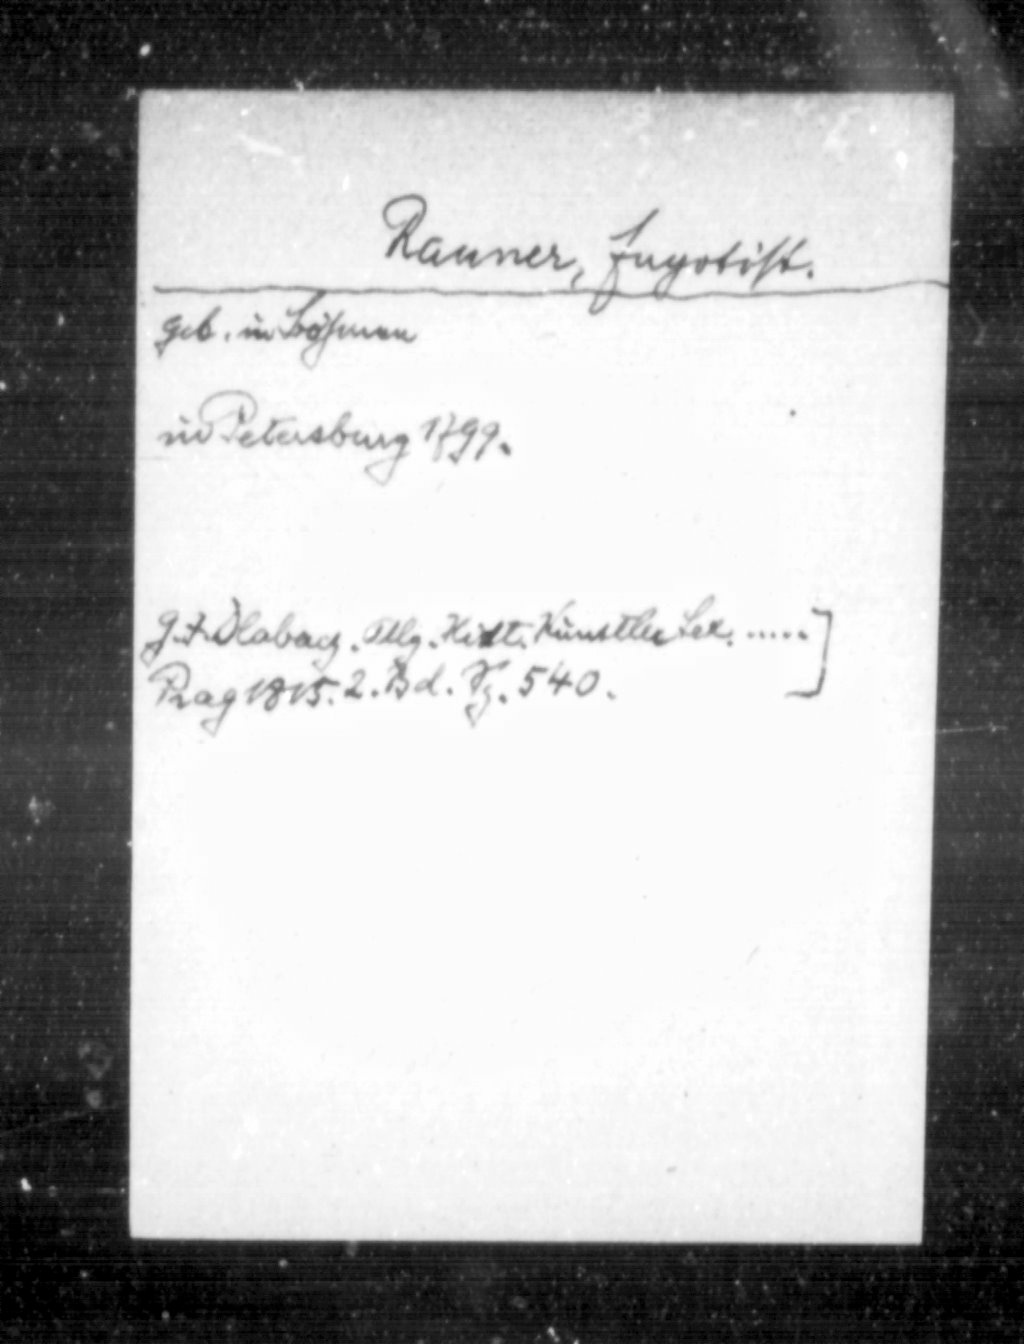 Rauner, Fagotist.
geb. in Böhmen
in Petersburg 1799.
G. J. Dlabacz. Allg. Hist. Künstler Lex. .....]
Prag 1815. 2. Bd. Sg. 540.